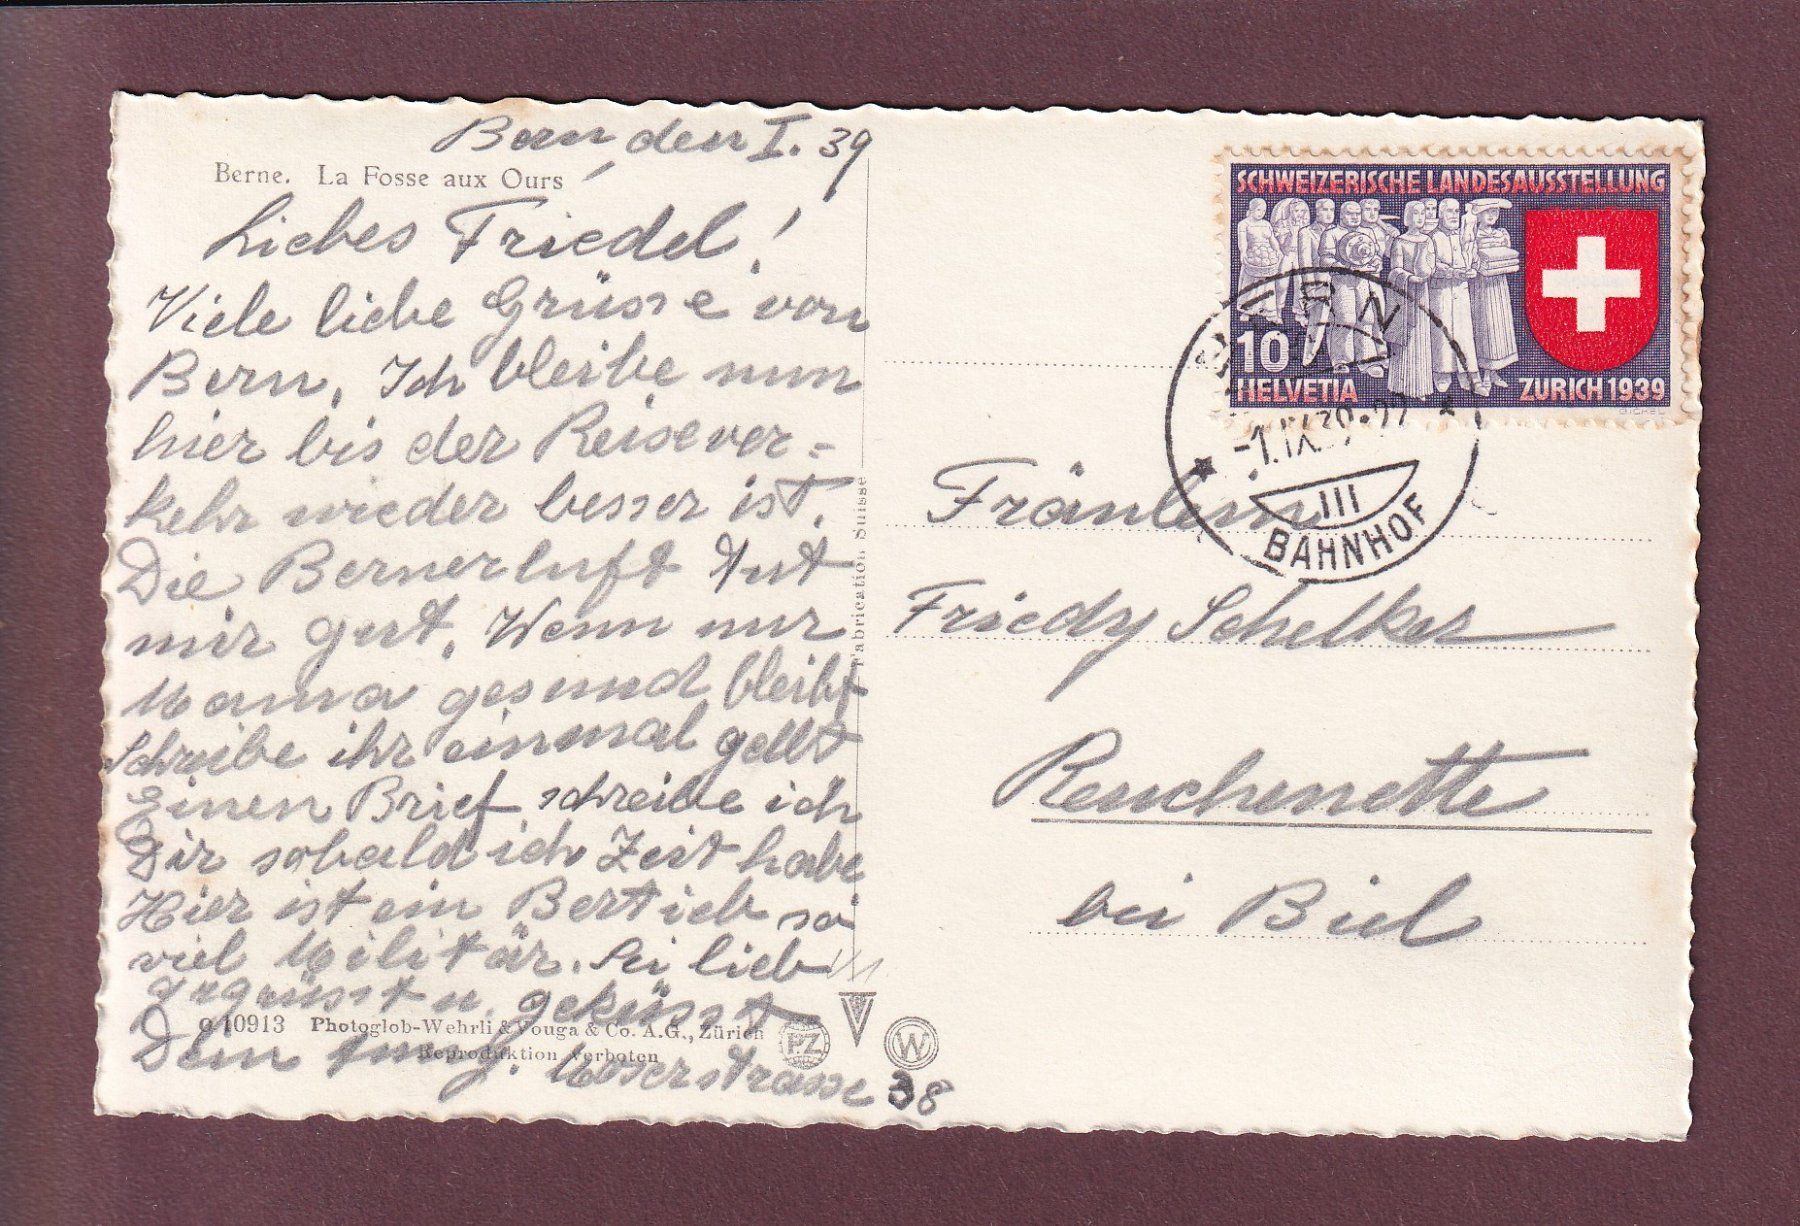 Bern, den I. 39
Berne. La Fosse aux Ours
Liebes Friedel!
Viele liebe Grüsse von
Bern, Ich bleibe nun
hier bis der Reisever=
kehr wieder besser ist.
Die Bernerluft tut
mir gut. Wenn nur
Mama gesund bleibt
Schreibe ihr einmal gellt
Einen Brief schreibe ich
Dir sobald ich Zeit habe
Hier ist ein Bertieb so
viel Militär. Sei lieb
gegrüsst u. geküsst
Dein
Moserstrasse 38
o 10913 Photoglob-Wehrli & Vouga & Co. A.G., Zürich
Reproduktion verboten
PZ
W
Fabrication Suisse
SCHWEIZERISCHE LANDESAUSSTELLUNG
10
HELVETIA
ZURICH 1939
BICKEL
BERN
-1.IX.39.-22
III
BAHNHOF
Fräulein
Friedy Schelker
Reuchenette
bei Biel